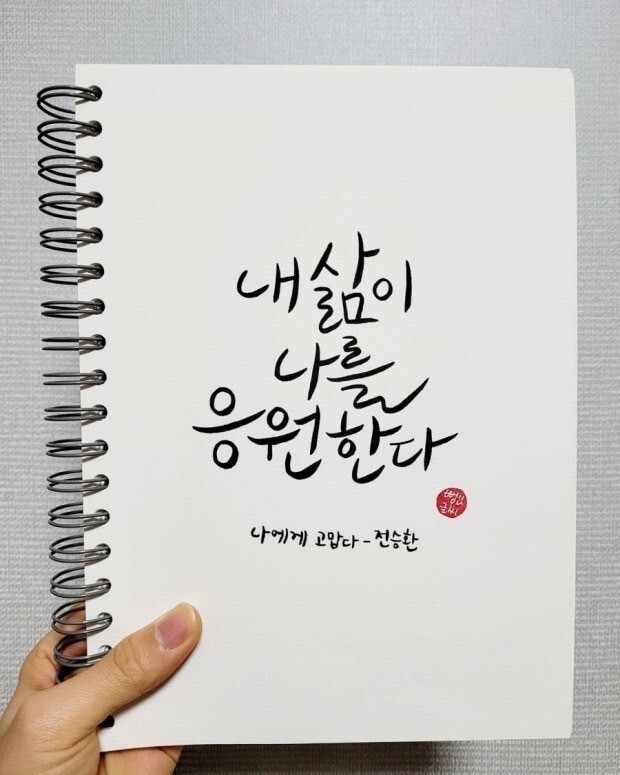 내 삶이
나를
응원한다
글씨
나에게 고맙다 - 전승환